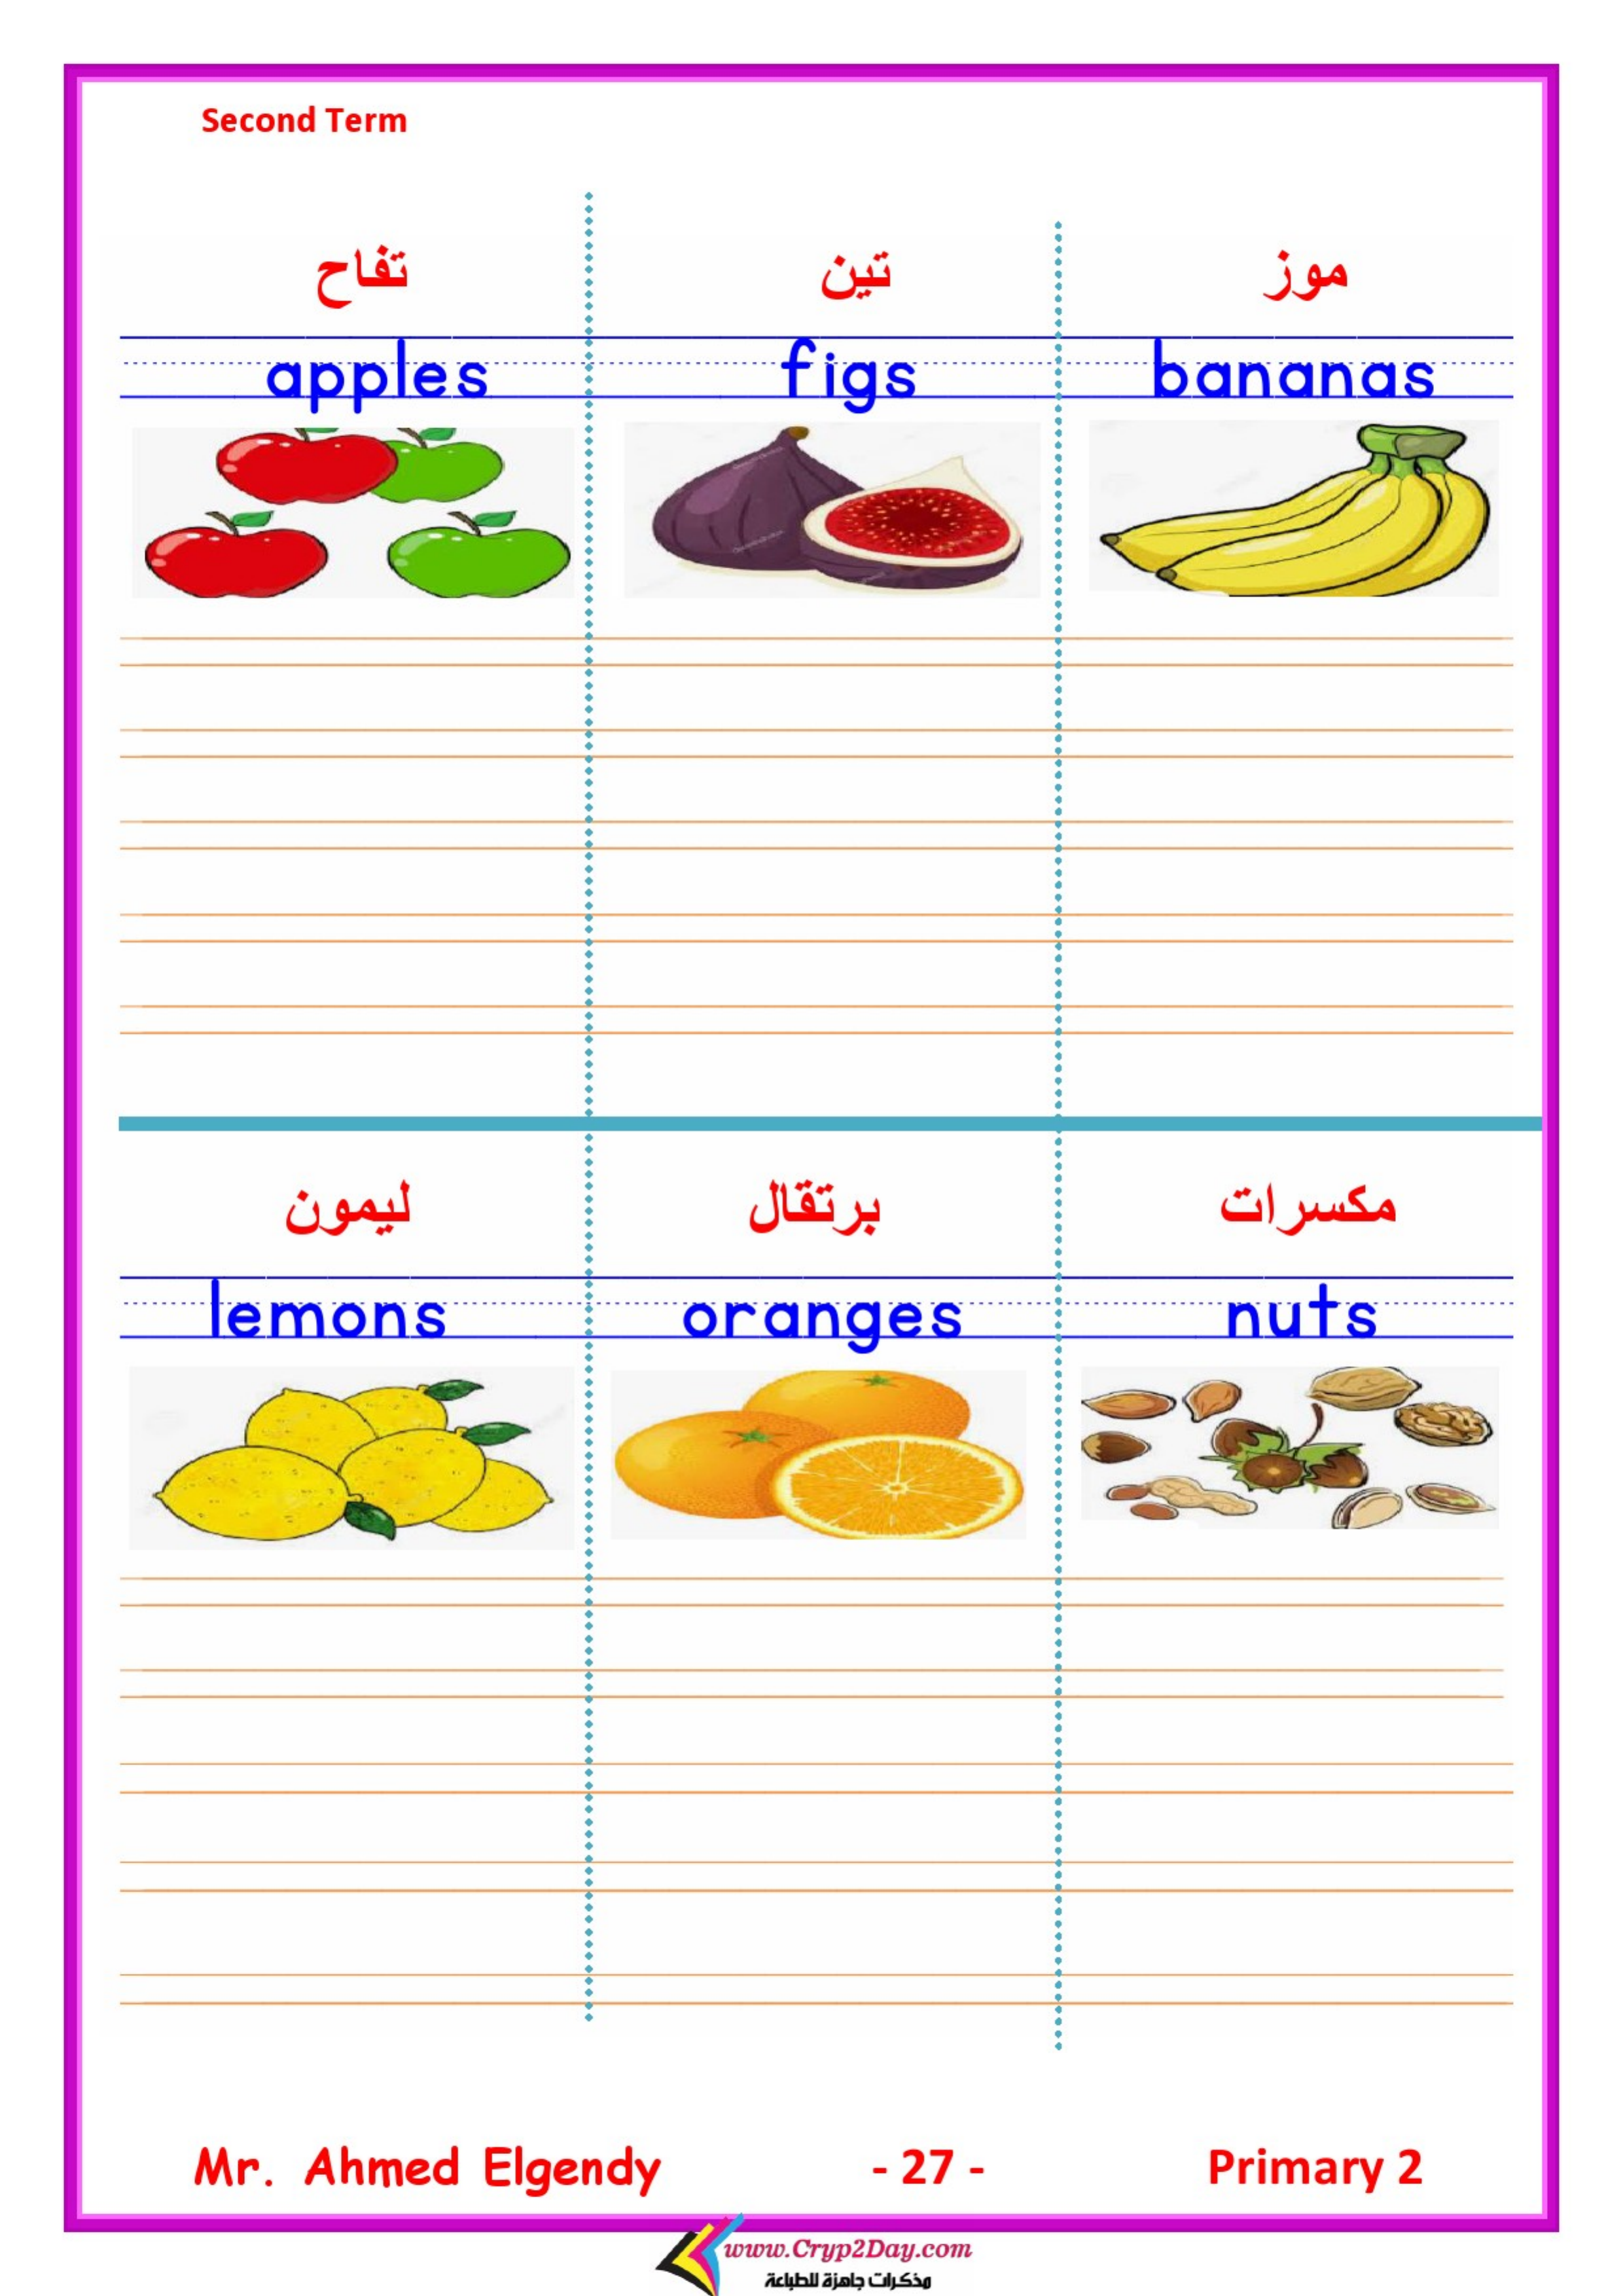 Second Term
تفاح تين موز
apples figs bananas
ليمون برتقال مكسرات
lemons oranges nuts
Mr. Ahmed Elgendy - 27 - Primary 2
www.Cryp2Day.com
مذكرات جاهزة للطباعة